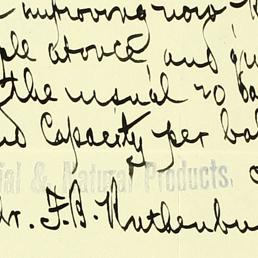 improving
ple above and
the usual 20 ba
capacity per bal
ial & Natural Products.
r. F. J. Ruthenbu